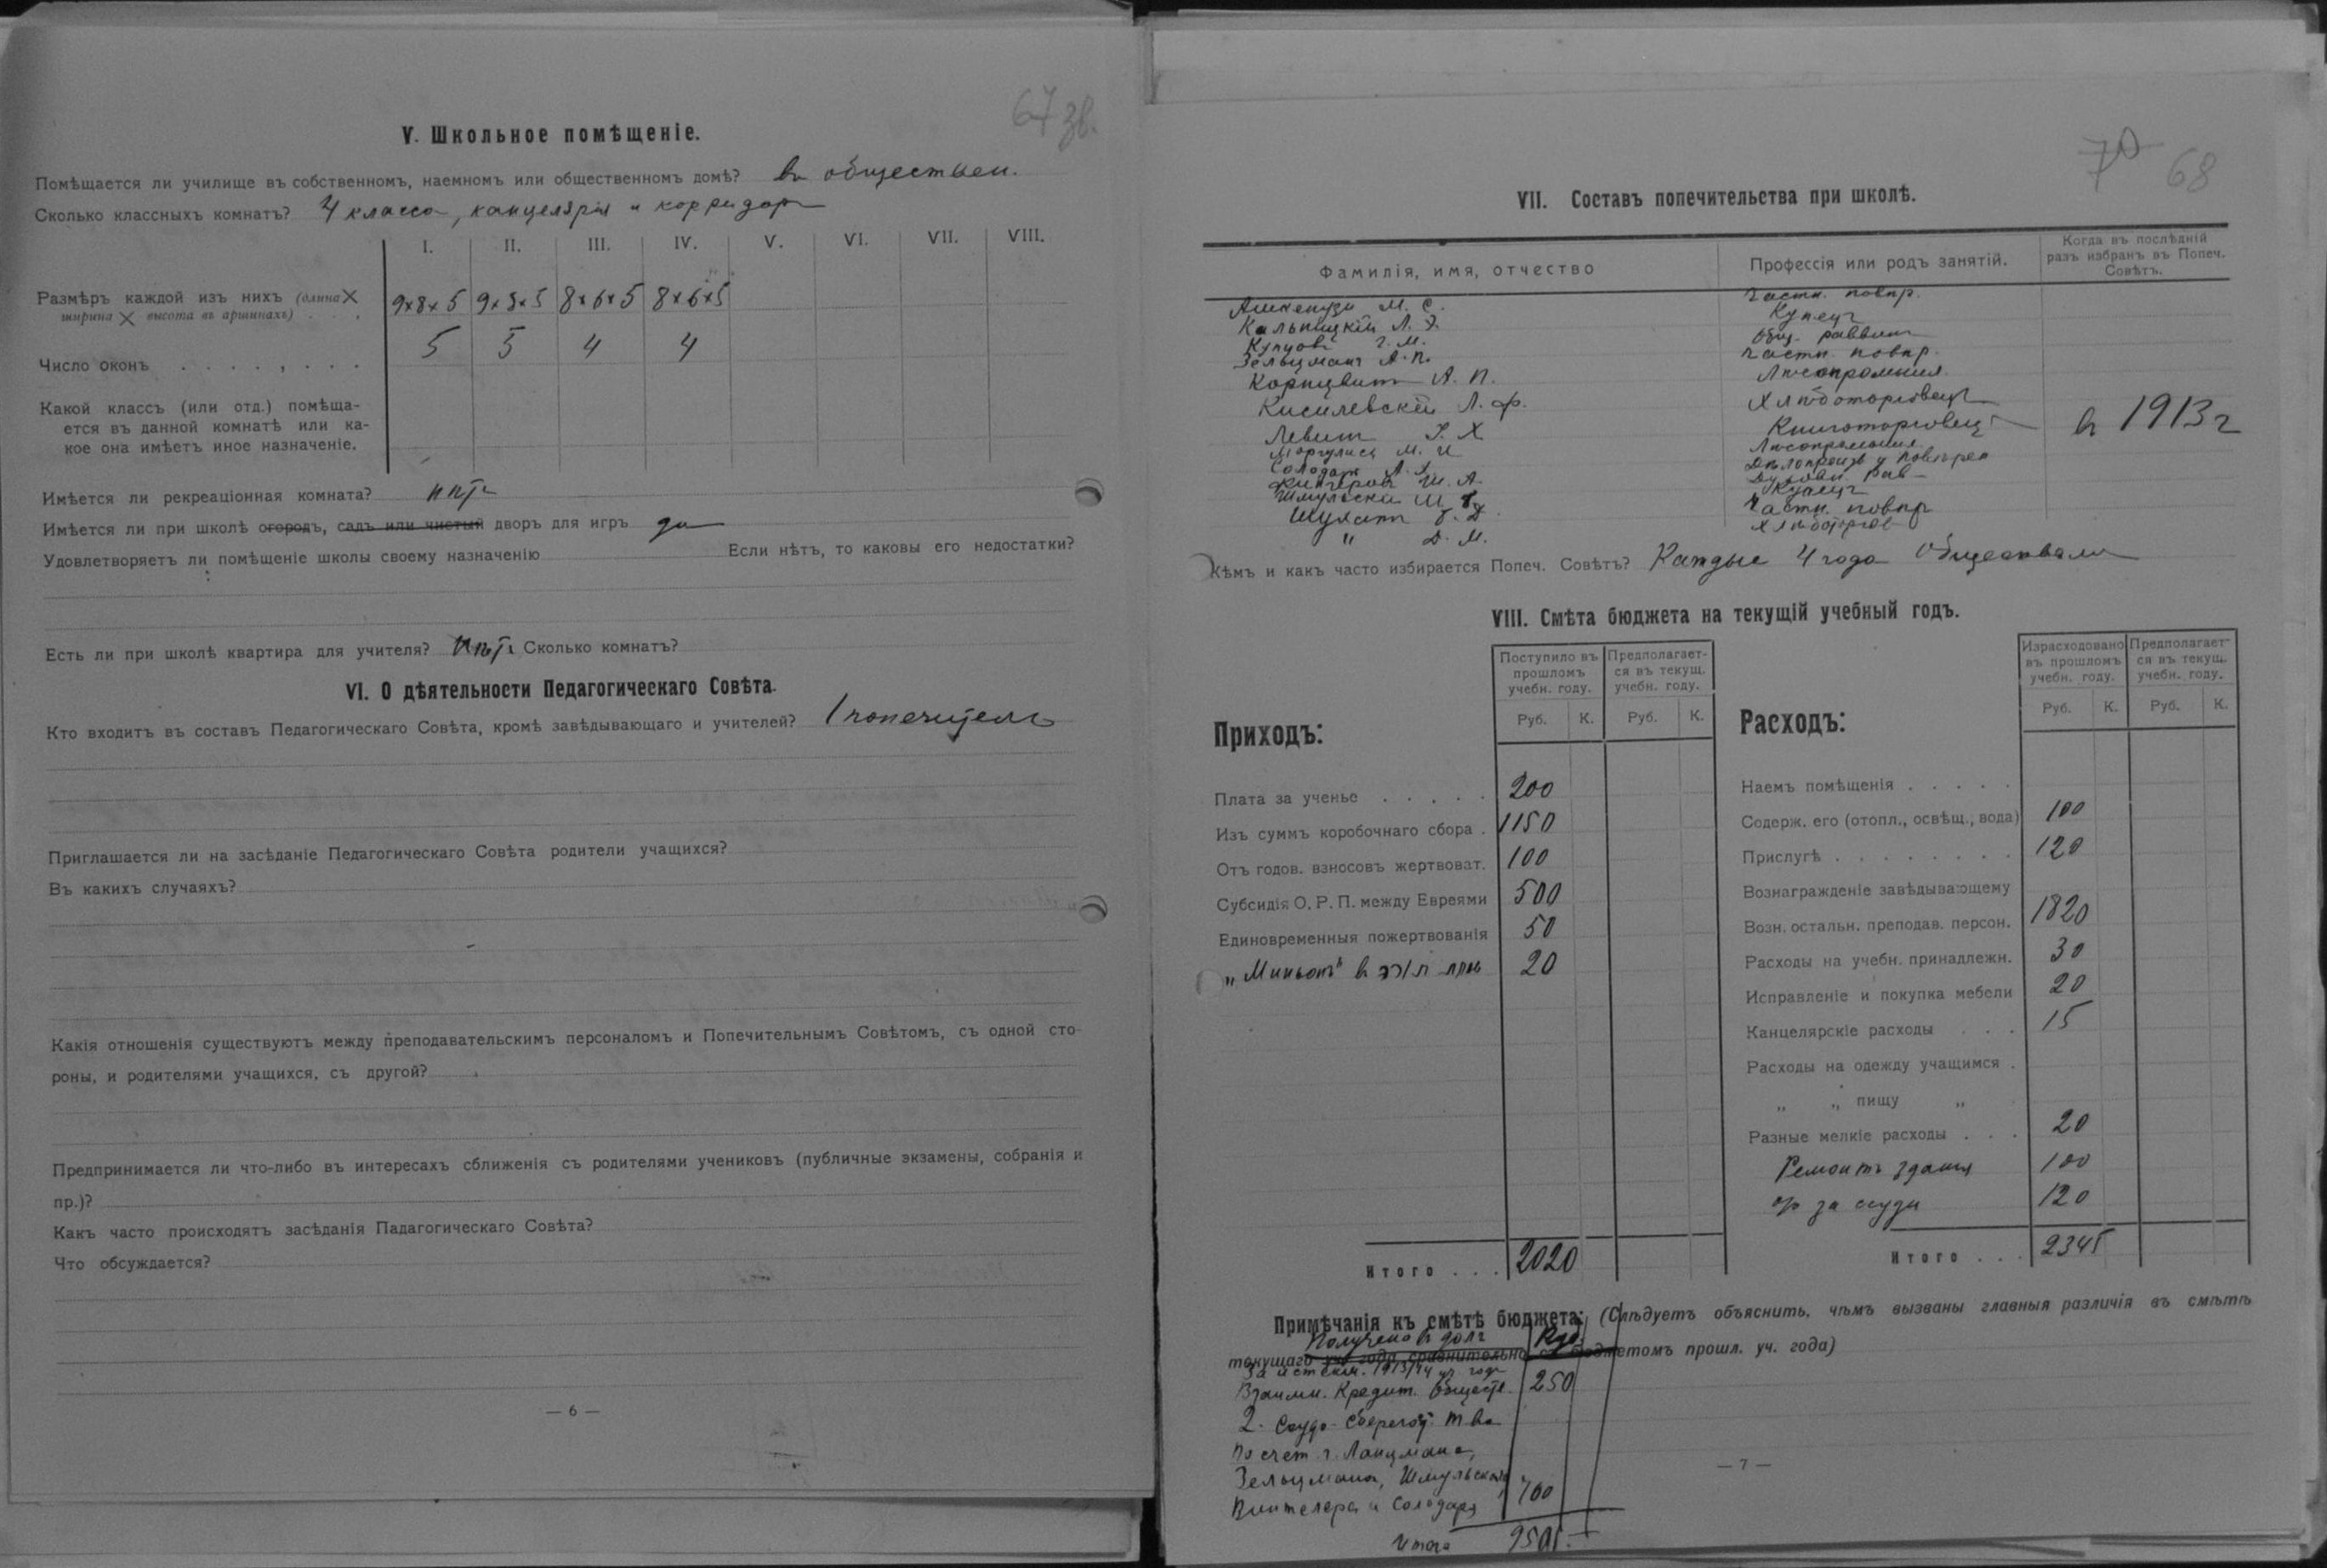 67 зв.
V. Школьное помѣщеніе.
Помѣщается ли училище въ собственномъ, наемномъ или общественномъ домѣ? въ обществен.
Сколько классныхъ комнатъ? 4 класса, канцелярія и корридоръ
I. II. III. IV. V. VI. VII. VIII.
Размѣръ каждой изъ нихъ (длина X
ширина X высота въ аршинахъ) . . . 9×8×5 9×8×5 8×6×5 8×6×5
Число оконъ . . . . . . . . 5 5 4 4
Какой классъ (или отд.) помѣща-
ется въ данной комнатѣ или ка-
кое она имѣетъ иное назначеніе.
Имѣется ли рекреаціонная комната? нѣтъ
Имѣется ли при школѣ огородъ, садъ или чистый дворъ для игръ да
Удовлетворяетъ ли помѣщеніе школы своему назначенію Если нѣтъ, то каковы его недостатки?
Есть ли при школѣ квартира для учителя? нѣтъ Сколько комнатъ?
VI. О дѣятельности Педагогическаго Совѣта.
Кто входитъ въ составъ Педагогическаго Совѣта, кромѣ завѣдывающаго и учителей? 1 попечитель
Приглашается ли на засѣданіе Педагогическаго Совѣта родители учащихся?
Въ какихъ случаяхъ?
Какія отношенія существуютъ между преподавательскимъ персоналомъ и Попечительнымъ Совѣтомъ, съ одной сто-
роны, и родителями учащихся, съ другой?
Предпринимается ли что-либо въ интересахъ сближенія съ родителями учениковъ (публичные экзамены, собранія и
пр.)?
Какъ часто происходятъ засѣданія Падагогическаго Совѣта?
Что обсуждается?
— 6 —
70 68
VII. Составъ попечительства при школѣ.
Фамилія, имя, отчество
Профессія или родъ занятій.
Когда въ послѣдній
разъ избранъ въ Попеч.
Совѣтъ.
Ашкенузи М. С. Частн. повѣр.
Кальницкій Л. Э. Купецъ
Купцовъ Г. М. Общ. раввинъ
Зельцманъ А. П. Частн. повѣр.
А. П. Лѣсопромышл.
Кисилевскій Л. Ф. Хлѣботорговецъ
Левитъ Х Книготорговецъ въ 1913 г
Моргулисъ М. И Лѣсопромышл.
Солодарь Дѣлопроизв у повѣрен
Ш. А. Духовн. рав
Шмульскій Ш Купецъ
Шухатъ Частн. повѣр
" Д. М. Хлѣботоргов
Кѣмъ и какъ часто избирается Попеч. Совѣтъ? Каждые 4 года Обществомъ
VIII. Смѣта бюджета на текущій учебный годъ.
Приходъ:
Поступило въ
прошломъ
учебн. году.
Предполагает-
ся въ текущ.
учебн. году.
Руб. К. Руб. К.
Плата за ученье . . . . . 200
Изъ суммъ коробочнаго сбора . 1150
Отъ годов. взносовъ жертвоват. 100
Субсидія О. Р. П. между Евреями 500
Единовременныя пожертвованія 50
„Миньонъ" въ 20
Итого . . . 2020
Расходъ:
Израсходовано
въ прошломъ
учебн. году.
Предполагает-
ся въ текущ.
учебн. году.
Руб. К. Руб. К.
Наемъ помѣщенія . . . . .
Содерж. его (отопл., освѣщ., вода) 100
Прислугѣ . . . . . . . . 120
Вознагражденіе завѣдывающему
Возн. остальн. преподав. персон. 1820
Расходы на учебн. принадлежн. 30
Исправленіе и покупка мебели 20
Канцелярскіе расходы . . . 15
Расходы на одежду учащимся .
„ „ пищу „
Разные мелкіе расходы . . . 20
Ремонтъ зданія 100
% за ссуды 120
Итого . . . 2345
Примѣчанія къ смѣтѣ бюджета: (Слѣдуетъ объяснить, чѣмъ вызваны главныя различія въ смѣтѣ
Получено въ долг Руб.
текущаго уч. года сравнительно съ бюджетомъ прошл. уч. года)
За истекш. 1913/14 уч. годъ
Взаимн. Кредит. Обществ. 250
2. Ссудо-сберегат. т-ва
По счет. г. Ланцмана,
Зельцмана, Шмульскаго
и Солодаря 700
Итого 950
— 7 —